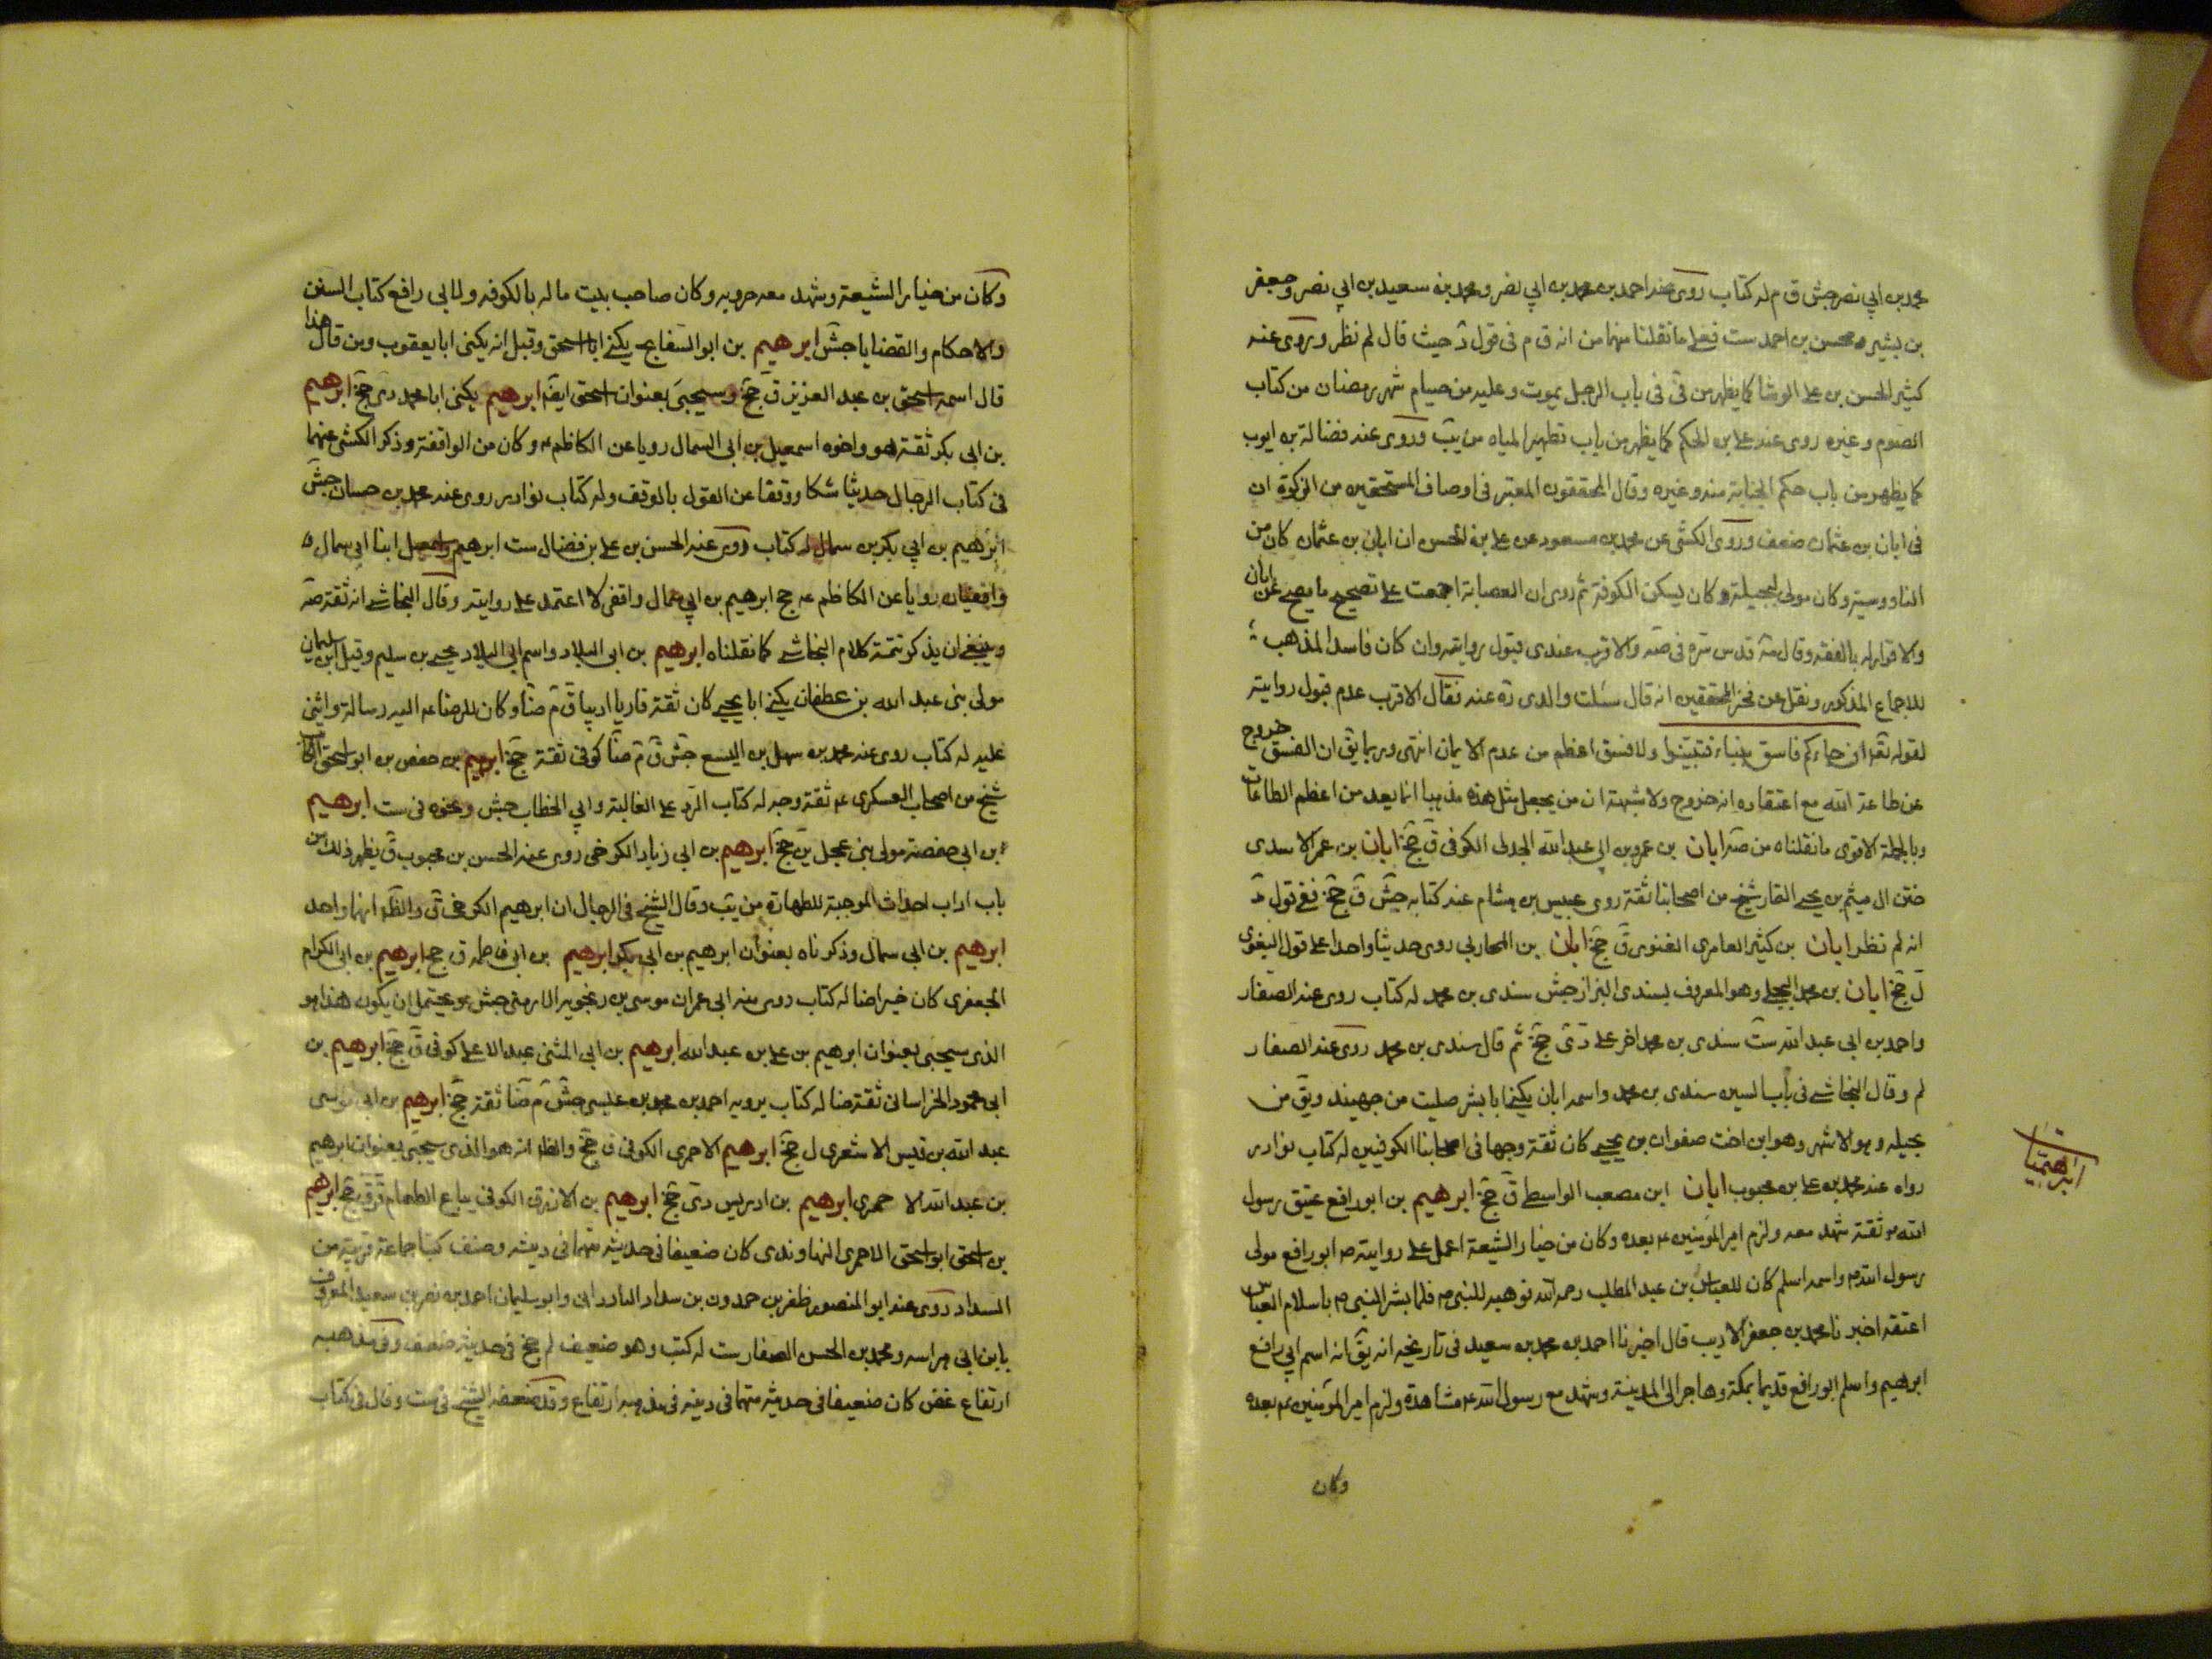 محمد بن ابي نصر جش ق م له كتاب روى عنه احمد بن محمد بن ابي نصر و محمد بن سعيد بن ابي نصر و جعفر
بن بشير و محسن بن احمد ست فعلى ما نقلنا منهما من انه ق م فى قول د حيث قال لم نظر و روى عنه
كثير الحسن بن على الوشا كما يظهر من فى فى باب الرجل يموت و عليه من صيام شهر رمضان من كتاب
الصوم و غيره روى عنه على بن الحكم كما يظهر من باب تطهير المياه من يب و روى عنه فضالة بن ايوب
كما يظهر من باب حكم الجنابة منه و غيره و قال المحققون المعتبر فى اوصاف المستحقين من الزكوة ان
فى ابان بن عثمان ضعف و روى الكشى عن محمد بن مسعود عن على بن الحسن ان ابان بن عثمان كان من
الناووسية و كان مولى لبجيلة و كان يسكن الكوفة ثم روى ان العصابة اجمعت على تصحيح ما يصح عن ابان
والاقرار له بالفقه و قال مة قدس سره فى صه والاقرب عندى قبول روايته و ان كان فاسد المذهب
للاجماع المذكور و نقل عن فخر المحققين انه قال سئلت والدى ره عنه فقال الاقرب عدم قبول روايته
لقوله تعه ان جاءكم فاسق بنباء فتبينوا و لا فسق اعظم من عدم الايمان انتهى و ربما يق ان الفسق خروج
عن طاعة الله مع اعتقاده انه خروج ولا شبهة ان من يجعل مثل هذه مذهبا انما يعد من اعظم الطاعات
و بالجملة الاقوى ما نقلناه من صه ابان بن عمرو بن ابى عبد الله الجدلى الكوفى ق جخ ابان بن عمر الاسدى
ختن ال ميثم بن يحيى التمار شيخ من اصحابنا ثقة روى عبيس بن هشام عنه كتابه جش ق جخ ففى قول د
انه لم نظر ابان بن كثير العامرى الغنوى ق جخ ابان بن المحاربى روى حديثا واحدا على قول البغوى
ل جخ ابان بن محمد البجلى و هو المعروف بسندى البزاز جش سندى بن محمد له كتاب روى عنه الصفار
و احمد بن ابى عبد الله ست سندى بن محمد اخو على دى جخ ثم قال سندى بن محمد روى عنه الصفار
لم و قال النجاشى فى باب السين سندى بن محمد و اسمه ابان يكنى ابا بشر صليب من جهينه و يق من
بجيله و هو الاشهر و هو ابن اخت صفوان بن يحيى كان ثقة وجها فى اصحابنا الكوفيين له كتاب نوادر
رواه عنه محمد بن على بن محبوب ابان ابن مصعب الواسطى ق جخ ابرهيم بن ابو رافع عتيق رسول
الله ص ثقة شهد معه و لزم امير المؤمنين ع بعده و كان من خيار الشيعة اعمل على روايته صه ابو رافع مولى
رسول الله ص و اسمه اسلم كان للعباس بن عبد المطلب رحمه الله فوهبه للنبى ص فلما بشر النبى ص باسلام العباس
اعتقه اخبرنا محمد بن جعفر الاديب قال اخبرنا احمد بن محمد بن سعيد فى تاريخه انه يق ان اسم ابى رافع
ابرهيم و اسلم ابو رافع قديما بمكة و هاجر الى المدينة و شهد مع رسول الله ص مشاهده و لزم امير المؤمنين ع بعده
وكان
و كان من خيار الشيعة و شهد معه حروبه و كان صاحب بيت ماله بالكوفه و لابى رافع كتاب السنن
والاحكام والقضايا جش ابرهيم بن ابو السفاج يكنى ابا اسحق و قيل انه يكنى ابا يعقوب و من قال هذا
قال اسمه اسحق بن عبد العزيز ق جخ و سيجيى بعنوان اسحق ايضه ابرهيم يكنى ابا محمد دى جخ ابرهيم
بن ابى بكر ثقة هو و اخوه اسمعيل بن ابى السمال رويا عن الكاظم ع و كان من الواقفة و ذكر الكشى عنهما
فى كتاب الرجال حديثا شكا و وقفا عن القول بالوقف و له كتاب نوادر روى عنه محمد بن حسان جش
ابرهيم بن ابى بكر بن سمال له كتاب روى عنه الحسن بن على بن فضال ست ابرهيم و اسمعيل ابنا ابى سمال
واقفيان رويا عن الكاظم ع جخ ابرهيم بن ابى سمال واقفى لا اعتمد على روايته و قال النجاشى انه ثقة صه
و ينبغى ان يذكر تتمة كلام النجاشى كما نقلناه ابرهيم بن ابى البلاد و اسم ابى البلاد يحيى بن سليم و قيل ابن سليمان
مولى بنى عبد الله بن غطفان يكنى ابا يحيى كان ثقة قاريا اديبا ق م ضا و كان للرضا ع اليه رسالة و اثنى
عليه له كتاب روى عنه محمد بن سهل بن اليسع جش ق م ضا كوفى ثقة جخ ابرهيم بن حفص بن ابو اسحق الكاتب
شيخ من اصحاب العسكرى ع ثقة وجه له كتاب الرد على الغالية و ابى الخطاب جش و نحوه فى ست ابرهيم
بن ابى حفصة مولى بنى عجل ين جخ ابرهيم بن ابى زياد الكرخى روى عنه الحسن بن محبوب ق يظهر ذلك من
باب اداب احداث الموجبة للطهارة من يب و قال الشيخ فى الرجال ان ابرهيم الكرخى ق و الظه انهما واحد
ابرهيم بن ابى سمال و ذكرناه بعنوان ابرهيم بن ابى بكر ابرهيم بن ابى فاطمه ق جخ ابرهيم بن ابى الكرام
الجعفرى كان خيرا ضا له كتاب روى عنه ابى عمران موسى بن رنجويه الارمنى جش و يحتمل ان يكون هذا هو
الذى سيجيى بعنوان ابرهيم بن على بن عبد الله ابرهيم بن ابى المثنى عبد الاعلى كوفى ق جخ ابرهيم بن
ابى محمود الخراسانى ثقة ضا له كتاب يرويه احمد بن محمد بن عيسى جش م ضا ثقة جخ ابرهيم بن ابى موسى
عبد الله بن قيس الاشعرى ل جخ ابرهيم الاحمرى الكوفى ق جخ و الظه انه هو الذى سيجيى بعنوان ابرهيم
بن عبد الله الاحمرى ابرهيم بن ادريس دى جخ ابرهيم بن الازرق الكوفى بياع الطعام ق ق جخ ابرهيم
بن اسحق ابو اسحق الاحمرى النهاوندى كان ضعيفا فى حديثه متهما فى دينه و صنف كتبا جماعة قريبة من
السداد روى عنه ابو المنصور ظفر بن حمدون بن سداد البادرائى و ابو سليمان احمد بن نصر بن سعيد المعروف
بابن ابى هراسه و محمد بن الحسن الصفار ست له كتب و هو ضعيف لم جخ فى حديثه ضعف و فى مذهبه
ارتفاع غض كان ضعيفا فى حديثه متهما فى دينه فى مذهبه ارتفاع و قد ضعفه الشيخ فى ست و قال فى كتاب